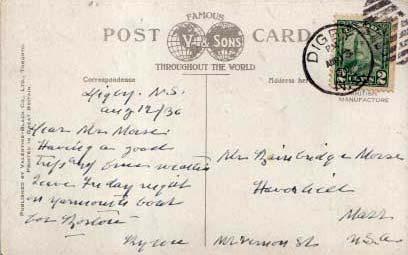 FAMOUS
POST CARD
& SONS
THROUGHOUT THE WORLD
Correspondence
Address here
PUBLISHED BY VALENTINE-BLACK CO., LTD., TORONTO.
PRINTED IN GREAT BRITAIN.
DIGBY
N.S.
2 2
MANUFACTURE
Digby, N.S.
aug 12/36
Dear Mrs Morse:
Having a good
trip and
leave Friday night
on yarmouth boat
for Boston
Byron
Mrs Bainbridge Morse
Haverhill
Mass
Mt Vernon St U.S.A